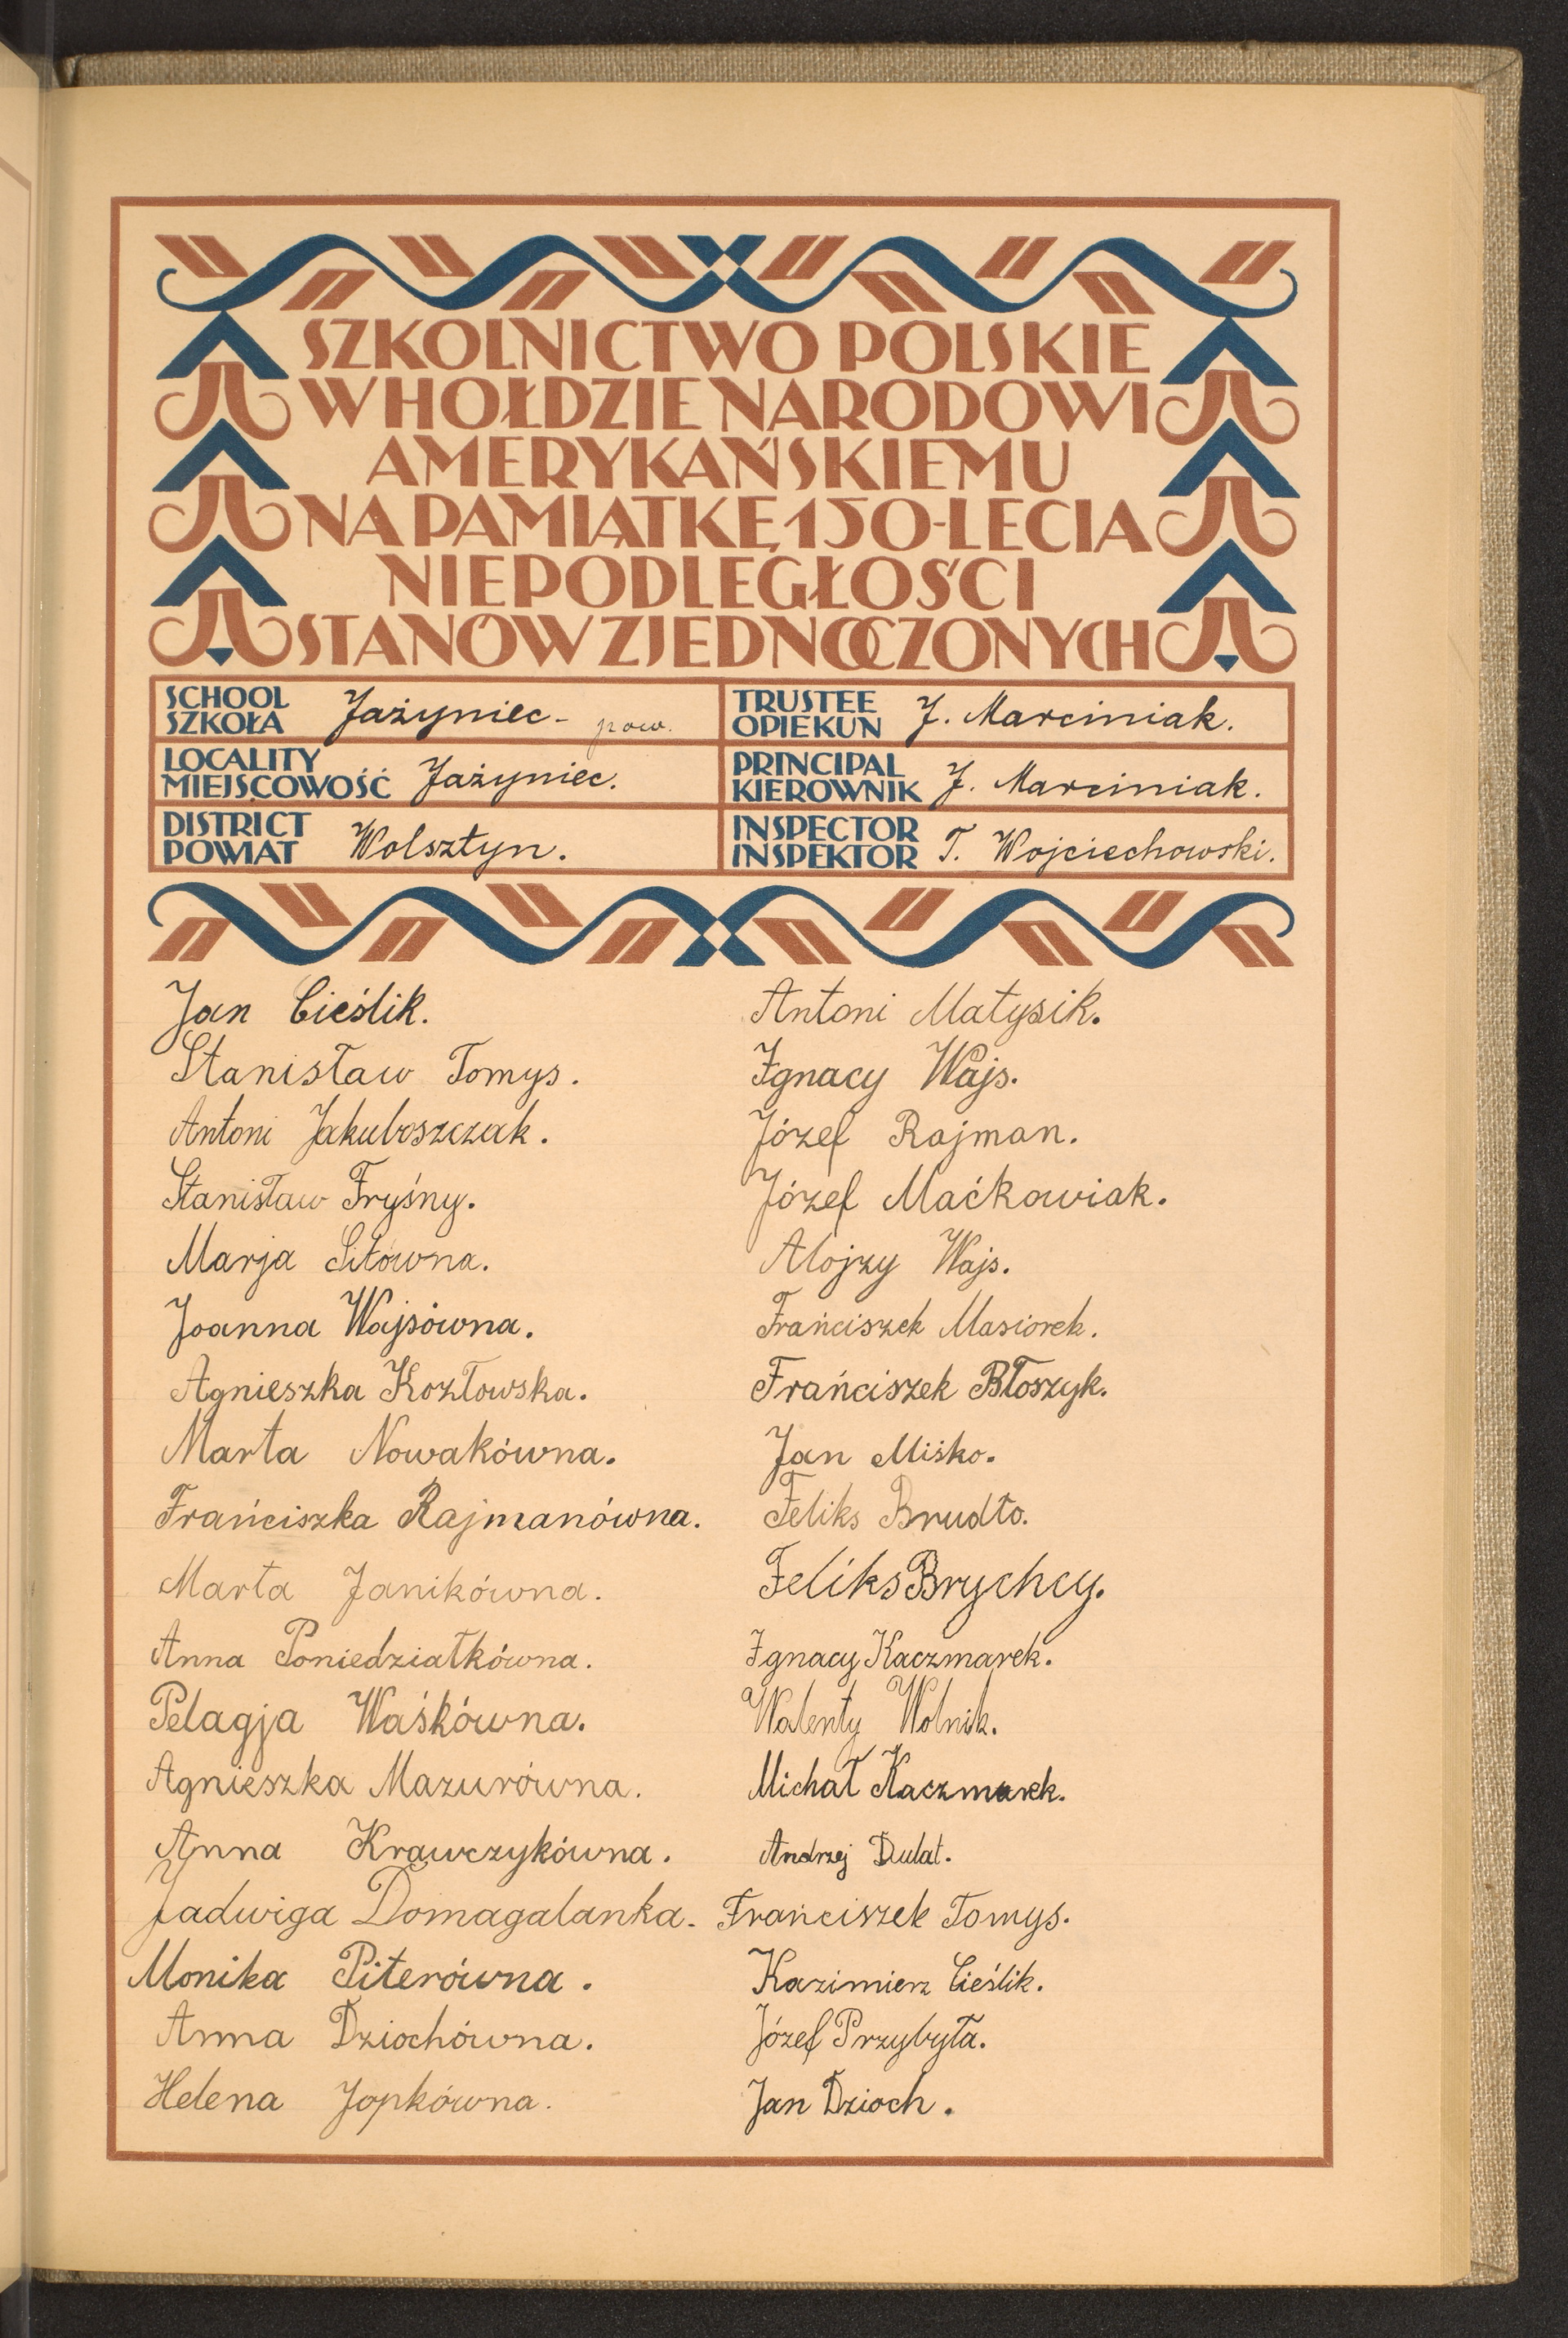 SZKOLNICTWO POLSKIE
W HOŁDZIE NARODOWI
AMERYKAŃSKIEMU
NA PAMIĄTKĘ 150-LECIA
NIEPODLEGŁOŚCI
STANÓW ZJEDNOCZONYCH
SCHOOL
SZKOŁA Jażyniec - pow.
TRUSTEE
OPIEKUN J. Marciniak.
LOCALITY
MIEJSCOWOŚĆ Jażyniec.
PRINCIPAL
KIEROWNIK J. Marciniak.
DISTRICT
POWIAT Wolsztyn.
INSPECTOR
INSPEKTOR T. Wojciechowski.
Jan Cieślik.
Stanisław Tomys.
Antoni Jakuboszczak.
Stanisław Fryśny.
Marja Sitówna.
Joanna Wajsówna.
Agnieszka Kozłowska.
Marta Nowakówna.
Frańciszka Rajmanówna.
Marta Janikówna.
Anna Poniedziałkówna.
Pelagja Waśkówna.
Agnieszka Mazurówna.
Anna Krawczykówna.
Jadwiga Domagalanka.
Monika Piterówna.
Anna Dziochówna.
Helena Jopkówna.
Antoni Matysik.
Ignacy Wajs.
Józef Rajman.
Józef Maćkowiak.
Alojzy Wajs.
Frańciszek Masiorek.
Frańciszek Błoszyk.
Jan Miśko.
Feliks Brudło.
Feliks Brychcy.
Ignacy Kaczmarek.
Walenty Wolnik.
Michał Kaczmarek.
Andrzej Dulat.
Frańciszek Tomys.
Kazimierz Cieślik.
Józef Przybyła.
Jan Dzioch.